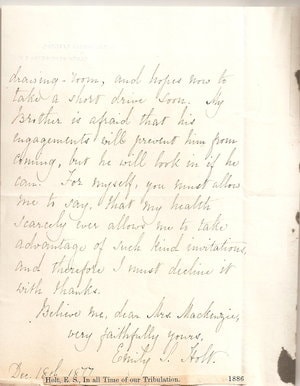 drawing-room, and hopes now to
take a short drive soon. My
Brother is afraid that his
engagements will prevent him from
coming, but he will look in if he
can. For myself, you must allow
me to say, that my health
scarcely ever allows me to take
advantage of such kind invitations,
and therefore I must decline it
with thanks.
Believe me, dear Mrs. Mackenzie,
very faithfully yours,
Emily S. Holt.
Dec. 18th 1877
Holt, E. S., In all Time of our Tribulation. 1886